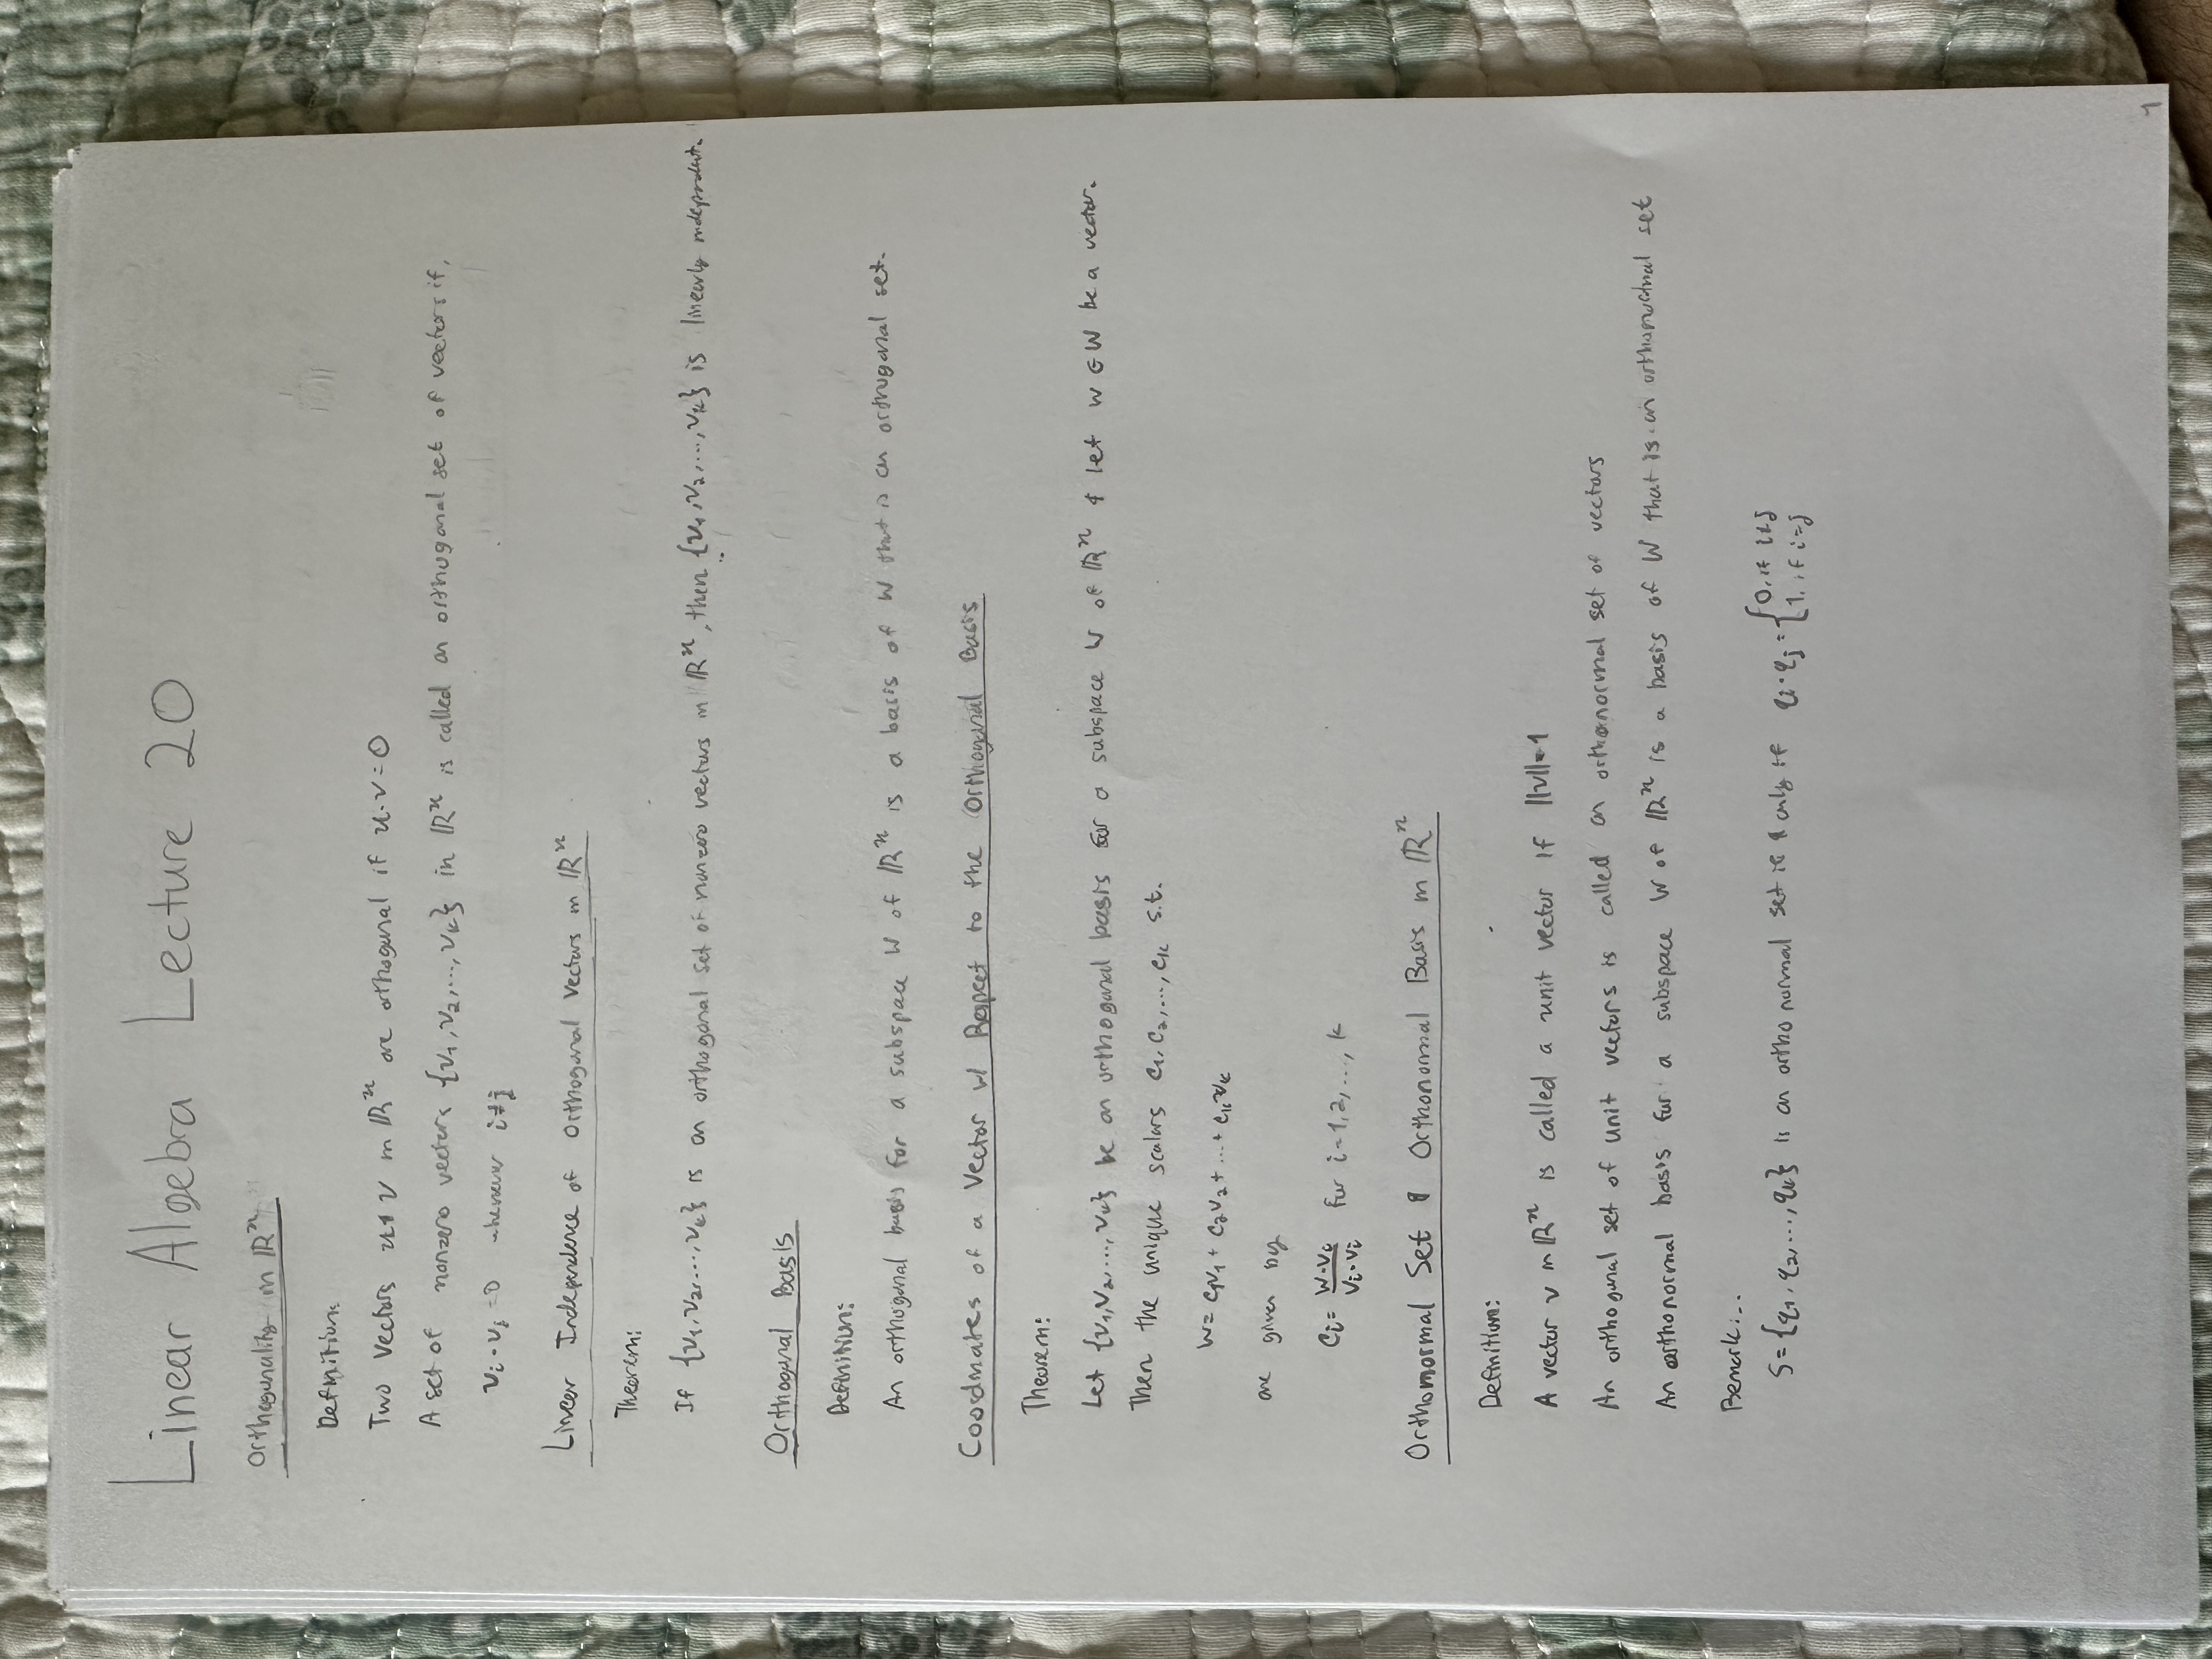 Linear Algebra Lecture 20
Orthogonality in ℝⁿ
Definition:
Two vectors u & v in ℝⁿ are orthogonal if u·v=0
A set of nonzero vectors {v₁,v₂,...,vₖ} in ℝⁿ is called an orthogonal set of vectors if,
vᵢ·vⱼ=0 whenever i≠j
Linear Independence of Orthogonal Vectors in ℝⁿ
Theorem:
If {v₁,v₂,...,vₖ} is an orthogonal set of nonzero vectors in ℝⁿ, then {v₁,v₂,...,vₖ} is linearly independent.
Orthogonal Basis
Definition:
An orthogonal basis for a subspace W of ℝⁿ is a basis of W that is an orthogonal set.
Coordinates of a Vector w/ Respect to the Orthogonal Basis
Theorem:
Let {v₁,v₂,...,vₖ} be an orthogonal basis for a subspace W of ℝⁿ & let w∈W be a vector.
Then the unique scalars c₁,c₂,...,cₖ s.t.
w= c₁v₁ + c₂v₂ + ... + cₖvₖ
are given by
cᵢ= w·vᵢ / vᵢ·vᵢ for i=1,2,...,k
Orthomormal Set & Orthonormal Basis in ℝⁿ
Definition:
A vector v in ℝⁿ is called a unit vector if ||v||=1
An orthogonal set of unit vectors is called an orthonormal set of vectors
An orthonormal basis for a subspace W of ℝⁿ is a basis of W that is an orthonormal set
Remark:..
S={q₁,q₂,...,qₖ} is an orthonormal set if & only if qᵢ·qⱼ={0, if i≠j
1, if i=j
1